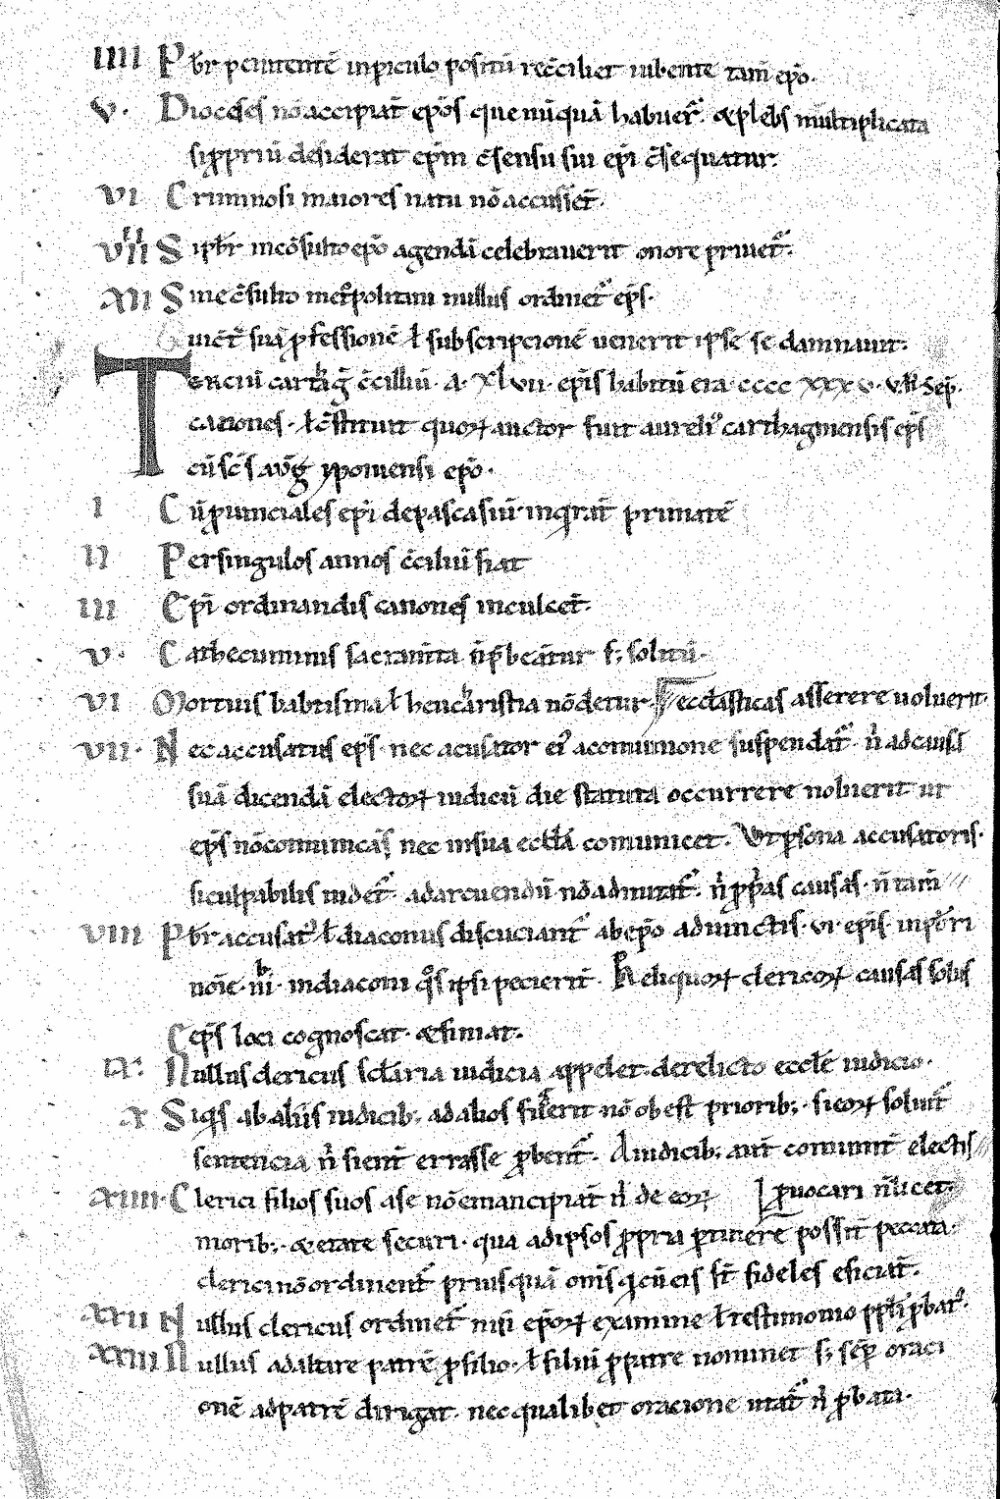 IIII Pb̅r penitente̅ in piculo positu̅ reco̅ciliet iubente tam̅ epo̅.
V. Dioceses no̅ accipiat̅ epo̅s que nu̅qua̅ habuer̅. & plebs multiplicata
si p̱priu̅ desiderat epm̅ co̅sensu sui epi̅ co̅sequatur.
VI Criminosi maiores natu no̅ accussent̅.
VIII Si pb̅r inco̅sulto epo̅ agenda̅ celebrauerit onore priuet̅.
XII Sine co̅sulto metro̅politani nullus ordinet̅ eps̅.
Qui co̅t̅ sua̅ p̱fessione̅ ł subscripcione̅ uenerit ipse se damnauit.
Terciu̅ cartag̅ co̅ciliu̅. a. XLVII. epis̅ habitu̅ era. CCCC XXXV. V. kł. Sep̅.
canones. ł co̅stituit quoꝝ auctor fuit aureli᾽ carthaginensis eps̅
cu̅ sc̅s aug̅ yponiensi epo̅.
I Cu̅ p̱uinciales epi̅ de pasca suu̅ inq̅rat̅ primate̅
II Per singulos annos co̅ciliu̅ fiat
III Epi̅ ordinandis canones inculcet̅.
V. Cathecuminis sacram̅ta n̅ p̅beantur s; solitu̅.
VI Mortuis babtisma ł heucharistia no̅ detur. eccłasticas asserere uoluerit.
VII. Nec accusatus eps̅. nec acusator ei᾽ a comunione suspendat̅. n̅ ad causa̅
sua̅ dicenda̅ electoꝝ iudiciu̅ die statuta occurrere noluerit ut
eps̅ no̅ comunicas̅ nec in sua eccła comunicet. Ut p̱sona accusatoris.
si culpabilis uidet̅. ad arcuendu̅ no̅ admitat̅. n̅ p̱p̅as causas. n̅ tam̅
VIII Pb̅r accusat᾽ ł diaconus discuciant̅ ab epo̅ adiunctis. VI. epis̅. in pb̅ri
noi̅e. III. in diaconi q̊s ipsi pecierit̅. Reliquoꝝ clericoꝝ causas solus
eps̅ loci cognoscat. & finiat.
IX. Nullus clericus scłaria iudicia appelet. derelicto eccłe iudicio.
X Siq̅s ab aliis iudicib; ad alios fuerit no̅ obest priorib;. si eoꝝ soluit̅
sentencia n̅ sient̅ errasse p̱bent̅. A iudicib; aut̅ comunit̅ electis
XIIII. Clerici filios suos a se no̅ emancipiat̅ n̅ de eoꝝ p̱uocari n̅ licet.
morib;. & etate securi. qua ad ipsos p̱prii p̱tinere possit̅ peccata.
clerici no̅ ordinent̅ priusqua̅ om̅s q̅ cu̅ eis st̅ fideles eficiat̅.
XXII Nullus clericus ordinet̅ nisi epo̅ꝝ examine ł testimonio ppłi p̱bat᾽.
XXIII Nullus ad altare patre̅ p̱ filio. ł filiu̅ p̱ patre nominet s; semp̱ oraci
one̅ ad patre̅ dirigat. nec qualibet oracione utat̅ n̅ p̱bata.